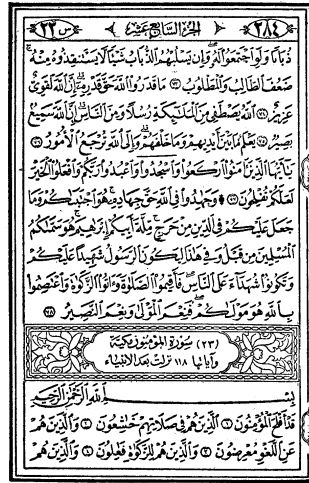 س ٢٣ الجزء السابع عشر ٢٨٤
ذُبَابًا وَلَوِ اجْتَمَعُوا لَهُ وَإِن يَسْلُبْهُمُ الذُّبَابُ شَيْئًا لَّا يَسْتَنقِذُوهُ مِنْهُ
ضَعُفَ الطَّالِبُ وَالْمَطْلُوبُ ٧٣ مَا قَدَرُوا اللَّهَ حَقَّ قَدْرِهِ إِنَّ اللَّهَ لَقَوِيٌّ
عَزِيزٌ ٧٤ اللَّهُ يَصْطَفِي مِنَ الْمَلَائِكَةِ رُسُلًا وَمِنَ النَّاسِ إِنَّ اللَّهَ سَمِيعٌ
بَصِيرٌ ٧٥ يَعْلَمُ مَا بَيْنَ أَيْدِيهِمْ وَمَا خَلْفَهُمْ وَإِلَى اللَّهِ تُرْجَعُ الْأُمُورُ ٧٦
يَا أَيُّهَا الَّذِينَ آمَنُوا ارْكَعُوا وَاسْجُدُوا وَاعْبُدُوا رَبَّكُمْ وَافْعَلُوا الْخَيْرَ
لَعَلَّكُمْ تُفْلِحُونَ ٧٧ وَجَاهِدُوا فِي اللَّهِ حَقَّ جِهَادِهِ هُوَ اجْتَبَاكُمْ وَمَا
جَعَلَ عَلَيْكُمْ فِي الدِّينِ مِنْ حَرَجٍ مِّلَّةَ أَبِيكُمْ إِبْرَاهِيمَ هُوَ سَمَّاكُمُ
الْمُسْلِمِينَ مِن قَبْلُ وَفِي هَذَا لِيَكُونَ الرَّسُولُ شَهِيدًا عَلَيْكُمْ
وَتَكُونُوا شُهَدَاءَ عَلَى النَّاسِ فَأَقِيمُوا الصَّلَاةَ وَآتُوا الزَّكَاةَ وَاعْتَصِمُوا
بِاللَّهِ هُوَ مَوْلَاكُمْ فَنِعْمَ الْمَوْلَى وَنِعْمَ النَّصِيرُ ٧٨
(٢٣) سورة المؤمنون مكية
وآياتها ١١٨ نزلت بعد الأنبياء
بِسْمِ اللَّهِ الرَّحْمَنِ الرَّحِيمِ
قَدْ أَفْلَحَ الْمُؤْمِنُونَ ١ الَّذِينَ هُمْ فِي صَلَاتِهِمْ خَاشِعُونَ ٢ وَالَّذِينَ هُمْ
عَنِ اللَّغْوِ مُعْرِضُونَ ٣ وَالَّذِينَ هُمْ لِلزَّكَاةِ فَاعِلُونَ ٤ وَالَّذِينَ هُمْ